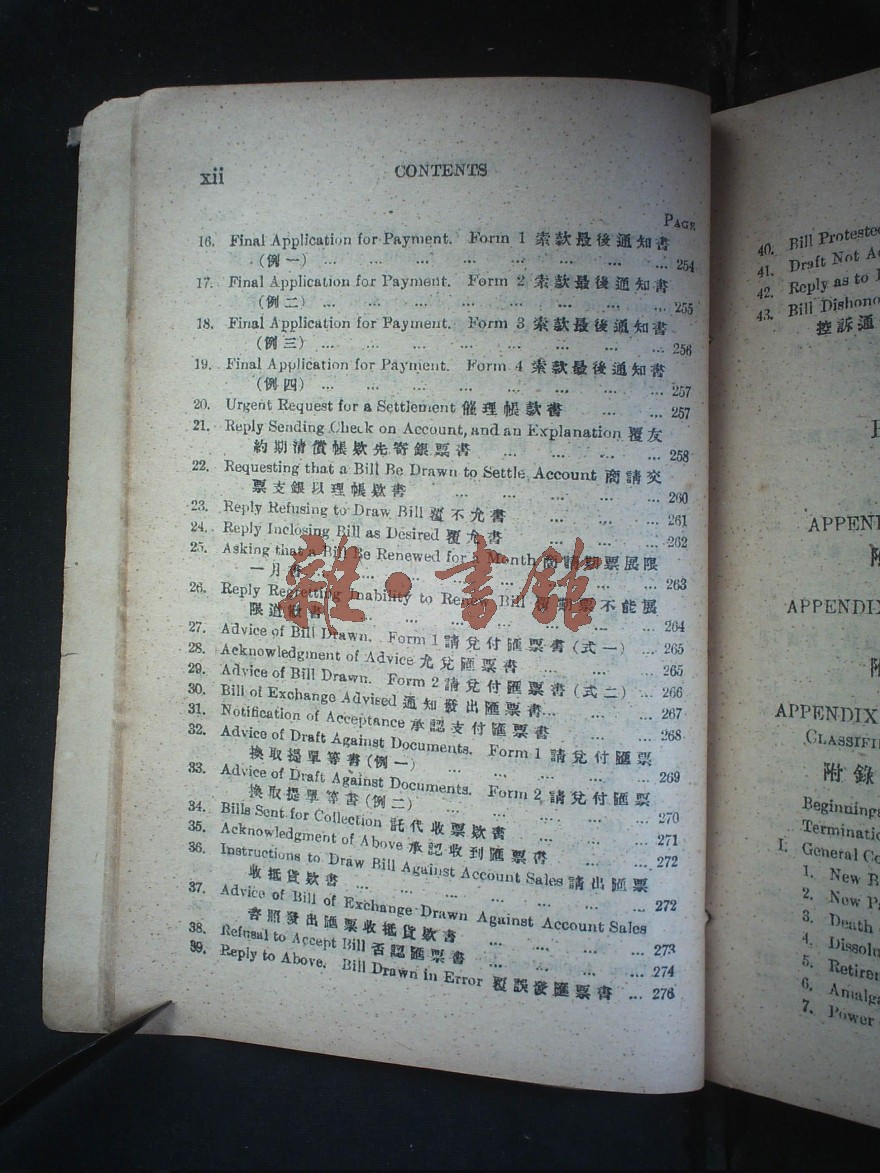 xii
CONTENTS
PAGE
16. Final Application for Payment. Form 1 索款最後通知書
(例一) ... ... ... ... ... ... ... ... ... 254
17. Final Application for Payment. Form 2 索款最後通知書
(例二) ... ... ... ... ... ... ... ... ... 255
18. Final Application for Payment. Form 3 索款最後通知書
(例三) ... ... ... ... ... ... ... ... ... 256
19. Final Application for Payment. Form 4 索款最後通知書
(例四) ... ... ... ... ... ... ... ... ... 257
20. Urgent Request for a Settlement 催理帳款書 ... ... 257
21. Reply Sending Check on Account, and an Explanation 覆友
約期清償帳欵先寄銀票書 ... ... ... ... 258
22. Requesting that a Bill Be Drawn to Settle Account 商請交
票支銀以理帳欵書 ... ... ... ... ... 260
23. Reply Refusing to Draw Bill 覆不允書 ... ... ... 261
24. Reply Inclosing Bill as Desired 覆允書 ... ... ... 262
25. Asking that a Bill Be Renewed for a Month 商請期票展限
一月書 ... ... ... ... ... ... ... 263
26. Reply Regretting Inability to Renew Bill 期票不能展
限道歉書 ... ... ... ... ... ... 264
27. Advice of Bill Drawn. Form 1 請兌付匯票書(式一) ... 265
28. Acknowledgment of Advice 允兌匯票書 ... ... 265
29. Advice of Bill Drawn. Form 2 請兌付匯票書(式二) ... 266
30. Bill of Exchange Advised 通知發出匯票書... ... ... 267
31. Notification of Acceptance 承認支付匯票書 ... ... 268
32. Advice of Draft Against Documents. Form 1 請兌付匯票
換取提單等書(例一) ... ... ... ... ... 269
33. Advice of Draft Against Documents. Form 2 請兌付匯票
換取提單等書(例二) ... ... ... ... ... 270
34. Bills Sent for Collection 託代收票欵書 ... ... ... 271
35. Acknowledgment of Above 承認收到匯票書 ... ... 272
36. Instructions to Draw Bill Against Account Sales 請出匯票
收抵貨欵書 ... ... ... ... ... ... ... 272
37. Advice of Bill of Exchange Drawn Against Account Sales
書照發出匯票收抵貨欵書 ... ... ... ... 273
38. Refusal to Accept Bill 否認匯票書 ... ... ... ... 274
39. Reply to Above. Bill Drawn in Error 覆誤發匯票書 ... 276
雜·書館
40. Bill Protested
41. Draft Not
42. Reply as to
43. Bill
控訴通
APPENDIX
APPENDIX
附錄
Beginnings
I. General
1. New
2. New
3. Death
4.
5.
6.
7. Power